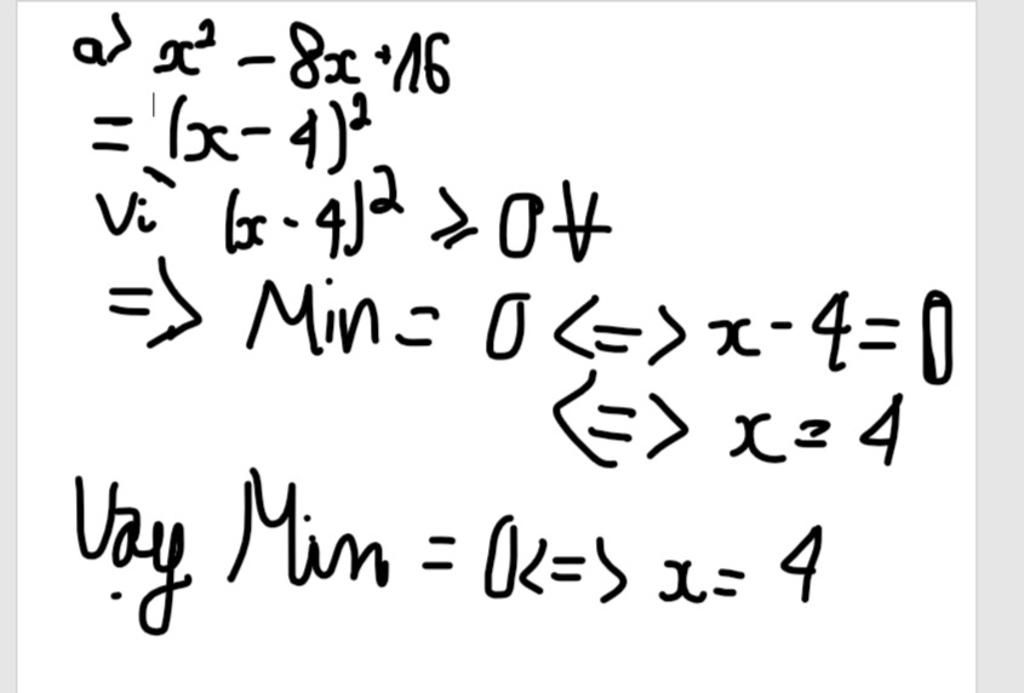 a) x² - 8x + 16
= (x - 4)²
Vì (x - 4)² ⩾ 0 ∀
=> Min = 0 <=> x - 4 = 0
<=> x = 4
Vậy Min = 0 <=> x = 4